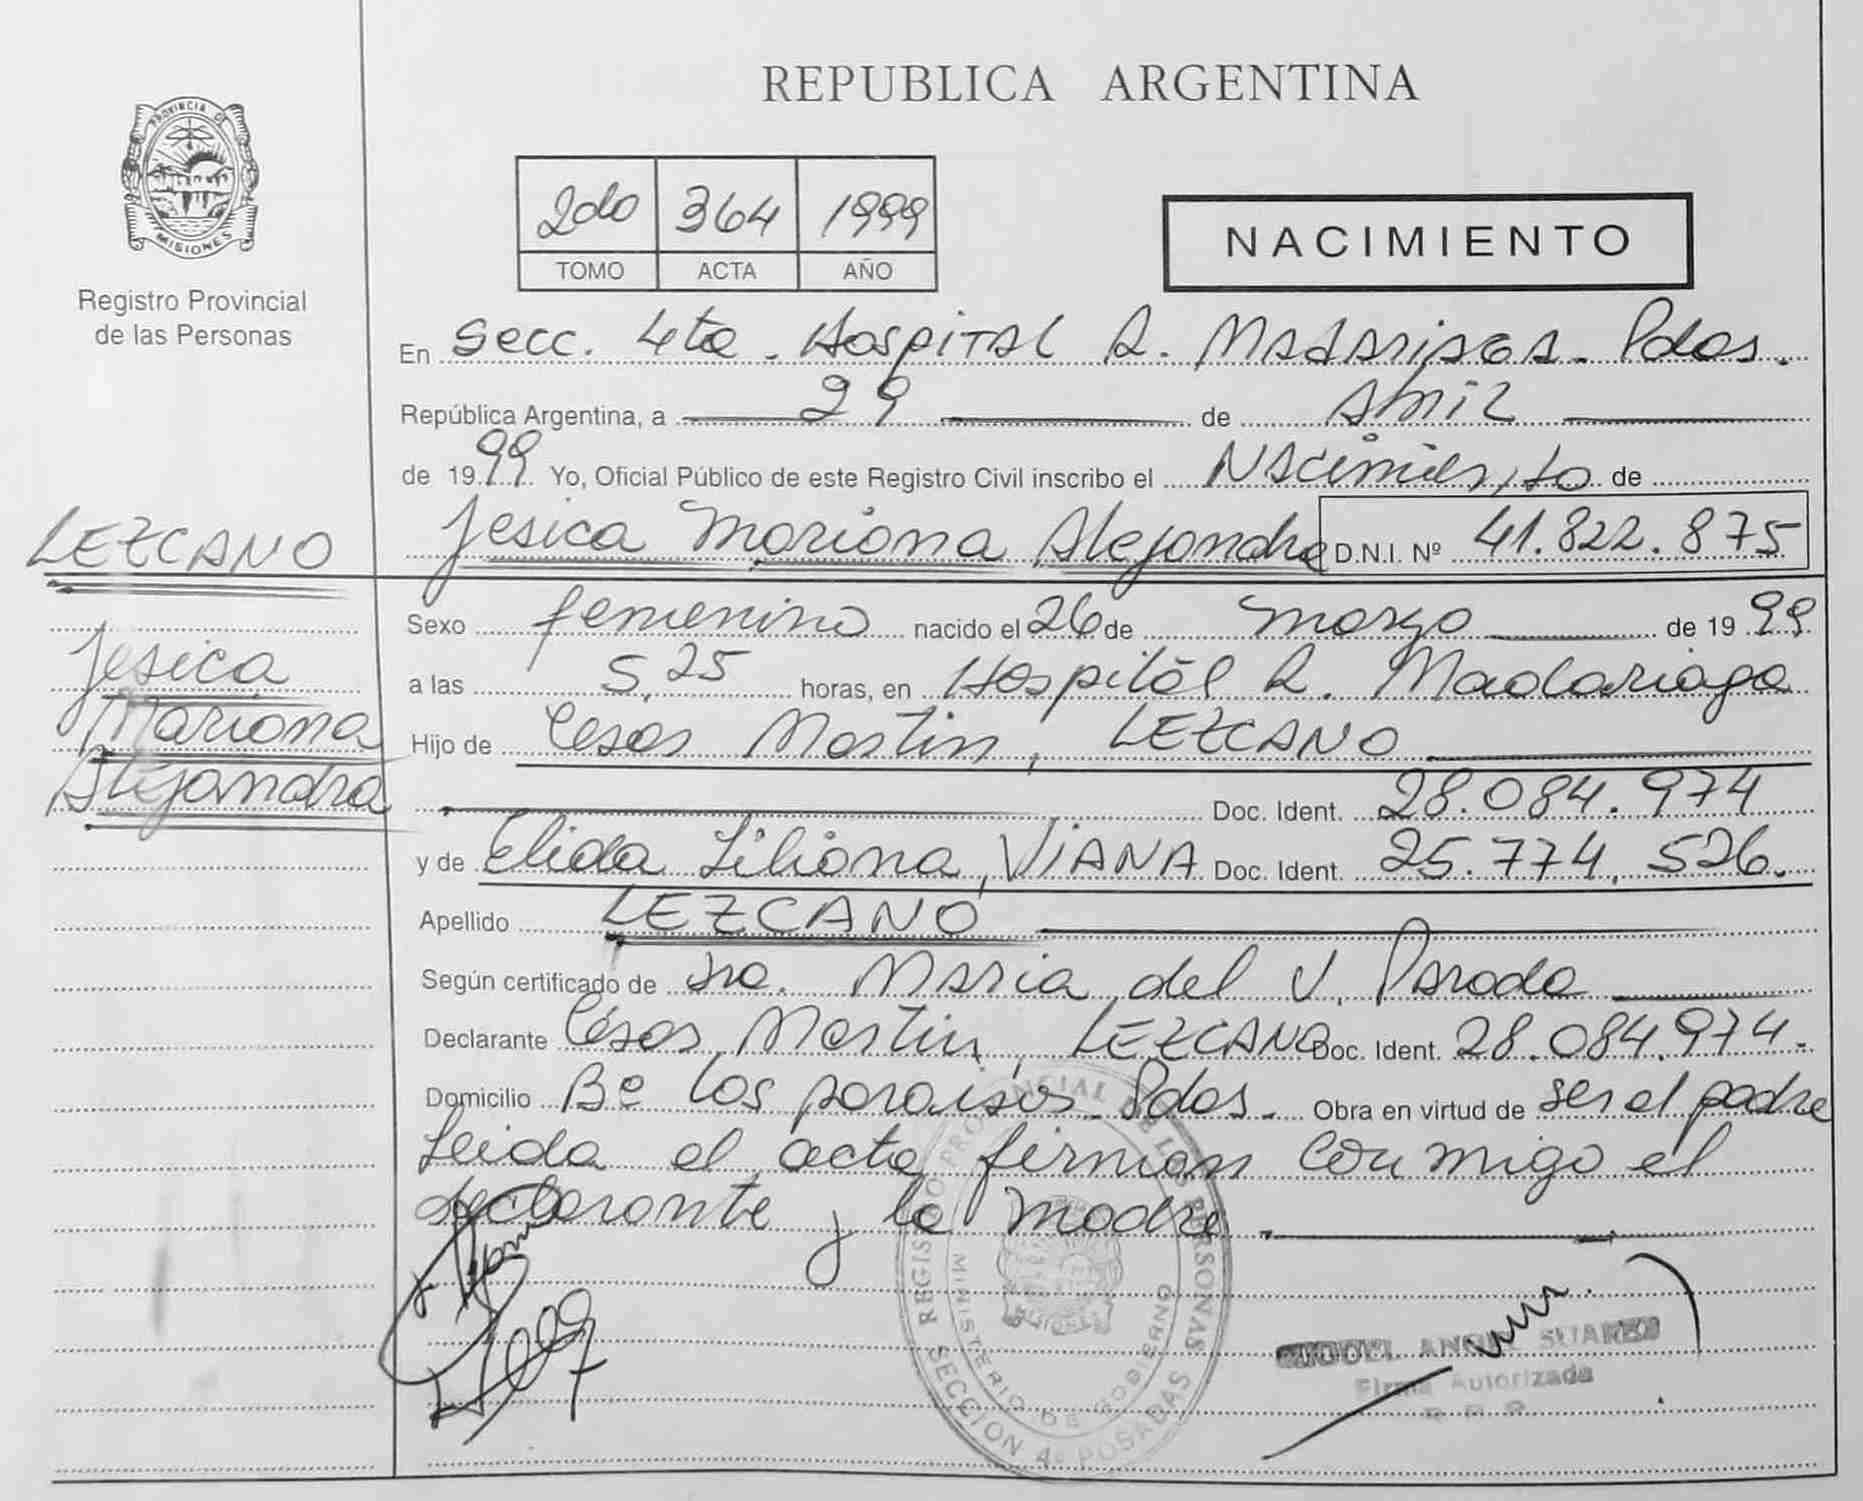 REPUBLICA ARGENTINA
PROVINCIA DE
MISIONES
Registro Provincial
de las Personas
2do 364 1999
TOMO ACTA AÑO
NACIMIENTO
En Secc. 4ta. Hospital R. Madariaga. Pdas.
República Argentina, a 29 de Abril
de 1999 Yo, Oficial Público de este Registro Civil inscribo el Nacimiento de
LEZCANO
Jesica Mariana Alejandra D.N.I. Nº 41.822.875
Sexo femenino nacido el 26 de marzo de 1999
Jesica
a las 5,25 horas, en Hospital R. Madariaga
Mariana
Hijo de Cesar Martin, LEZCANO
Alejandra
Doc. Ident. 28.084.974
y de Elida Liliana, VIANA Doc. Ident. 25.774.526.
Apellido LEZCANO
Según certificado de Dra. Maria del V. Parada
Declarante Cesar Martin, LEZCANO Doc. Ident. 28.084.974.
Domicilio Bº los paraisos. Pdas. Obra en virtud de ser el padre
Leida el acta firman conmigo el
declarante y la madre.
REGISTRO PROVINCIAL DE LAS PERSONAS
MINISTERIO DE GOBIERNO
SECCION 4º POSADAS
MIGUEL ANGEL SUAREZ
Firma Autorizada
R. P. P.